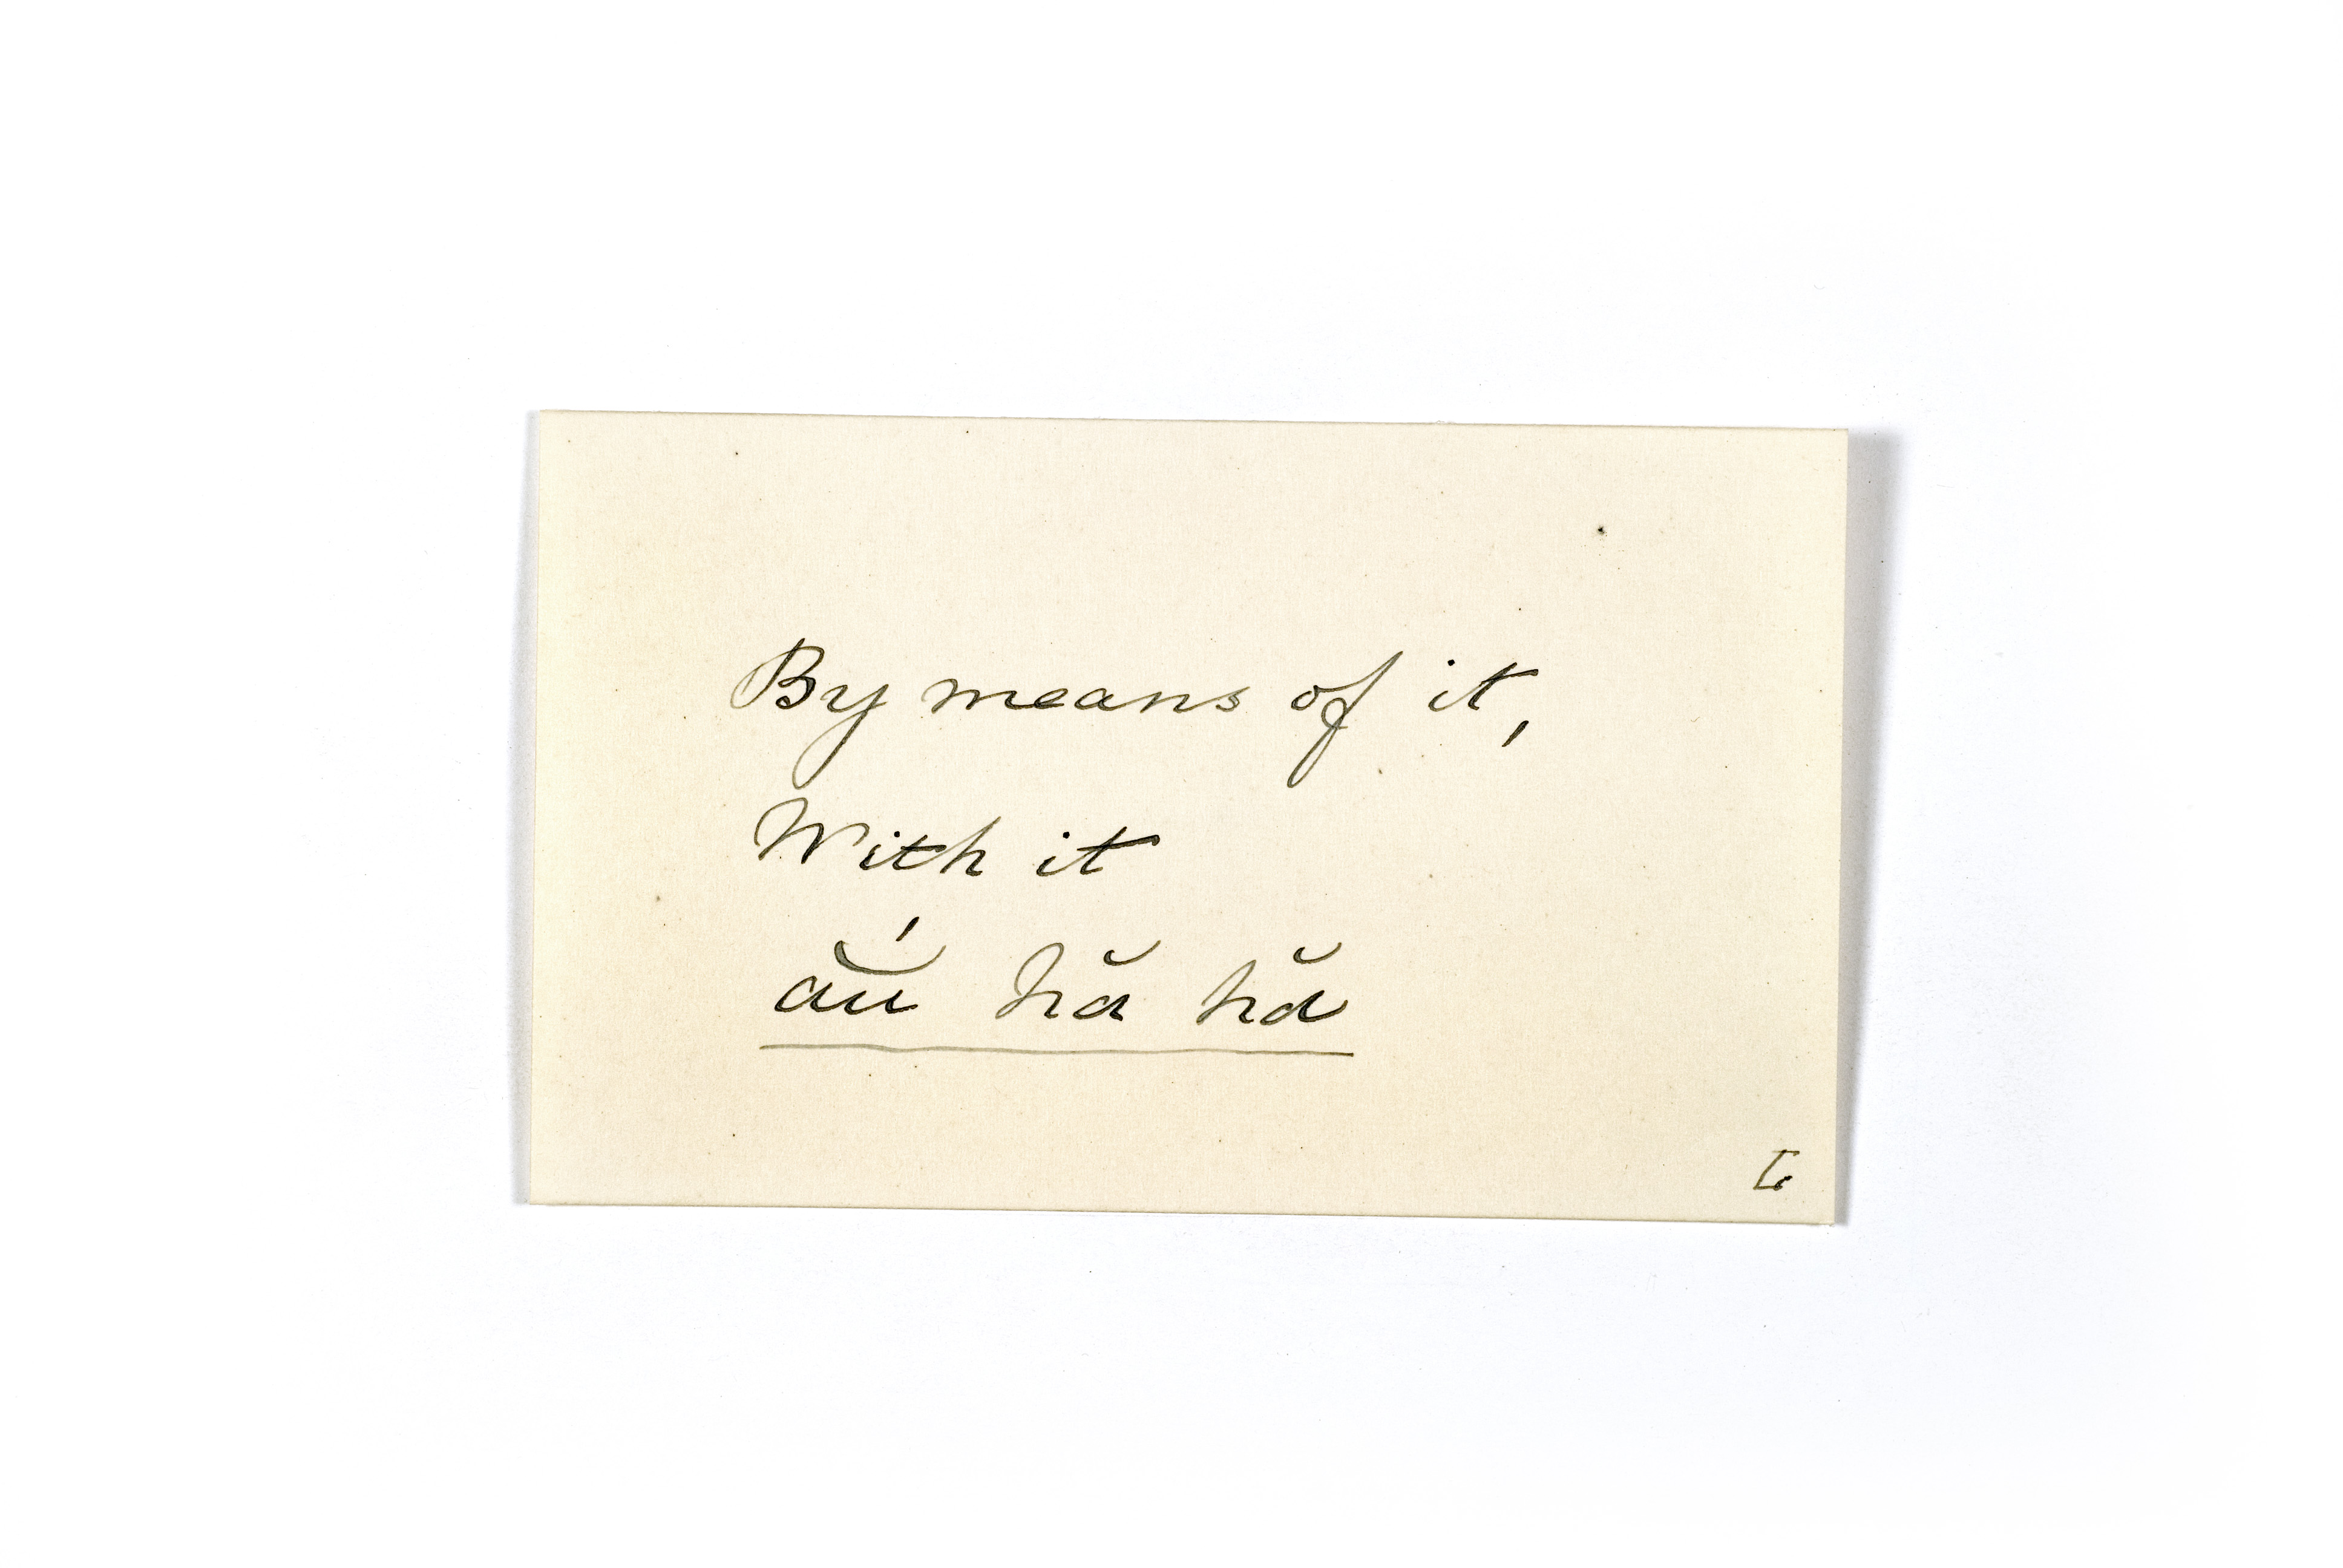 By means of it,
With it
ău' hă hă